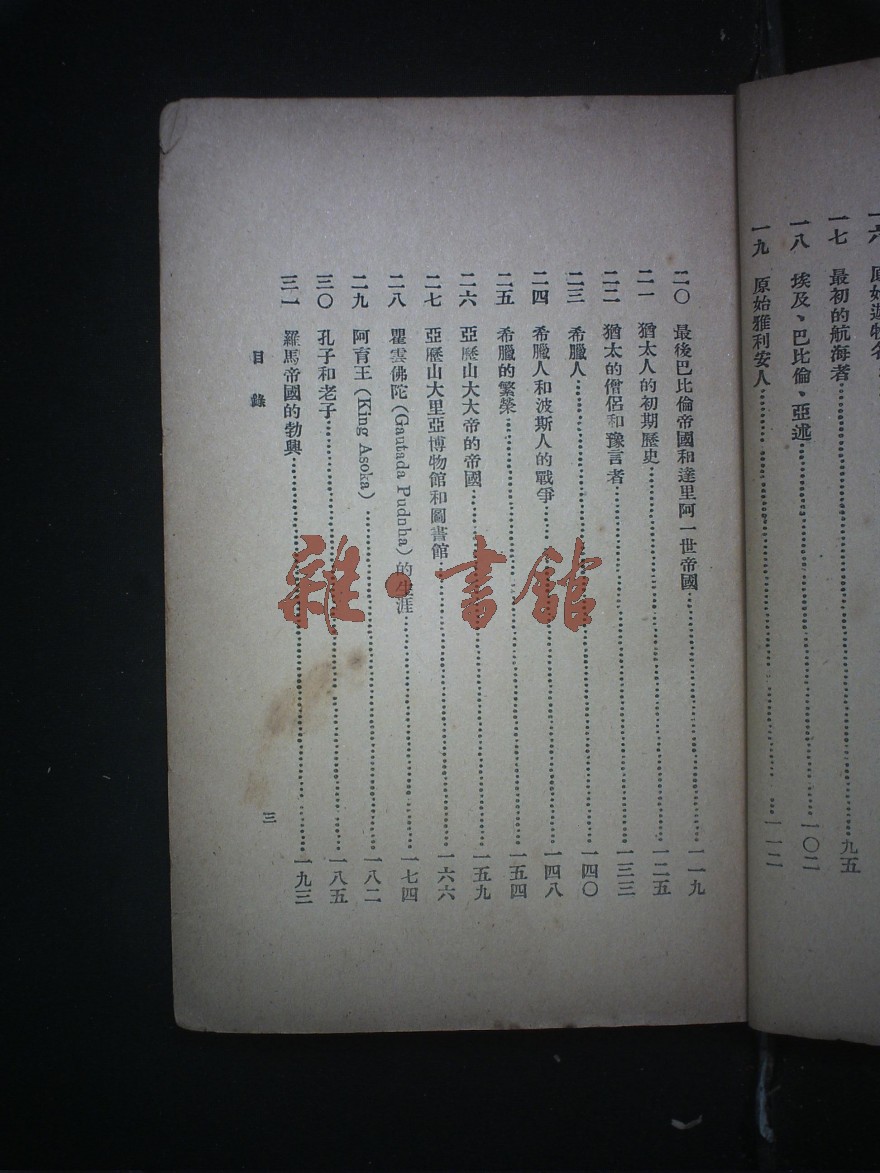 一七 最初的航海者………九五
一八 埃及、巴比倫、亞述………一〇二
一九 原始雅利安人………一一二
二〇 最後巴比倫帝國和達里阿一世帝國………一一九
二一 猶太人的初期歷史………一二五
二二 猶太的僧侶和豫言者………一三三
二三 希臘人………一四〇
二四 希臘人和波斯人的戰爭………一四八
二五 希臘的繁榮………一五四
二六 亞歷山大大帝的帝國………一五九
二七 亞歷山大里亞博物館和圖書館………一六六
二八 瞿雲佛陀(Gautada Pudnha)的生涯………一七四
二九 阿育王(King Asoka)………一八二
三〇 孔子和老子………一八五
三一 羅馬帝國的勃興………一九三
目錄
三
雜·書館